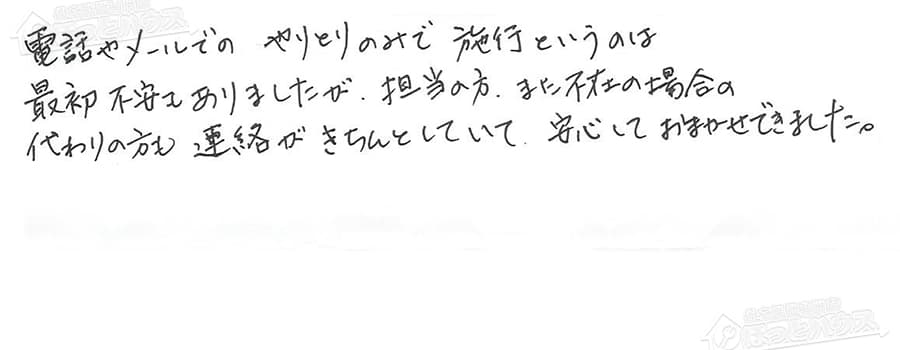 電話やメールでの やりとりのみで 施行というのは
最初 不安もありましたが、担当の方、また不在の場合の
代わりの方も 連絡がきちんとしていて、安心しておまかせできました。
ほっとハウス